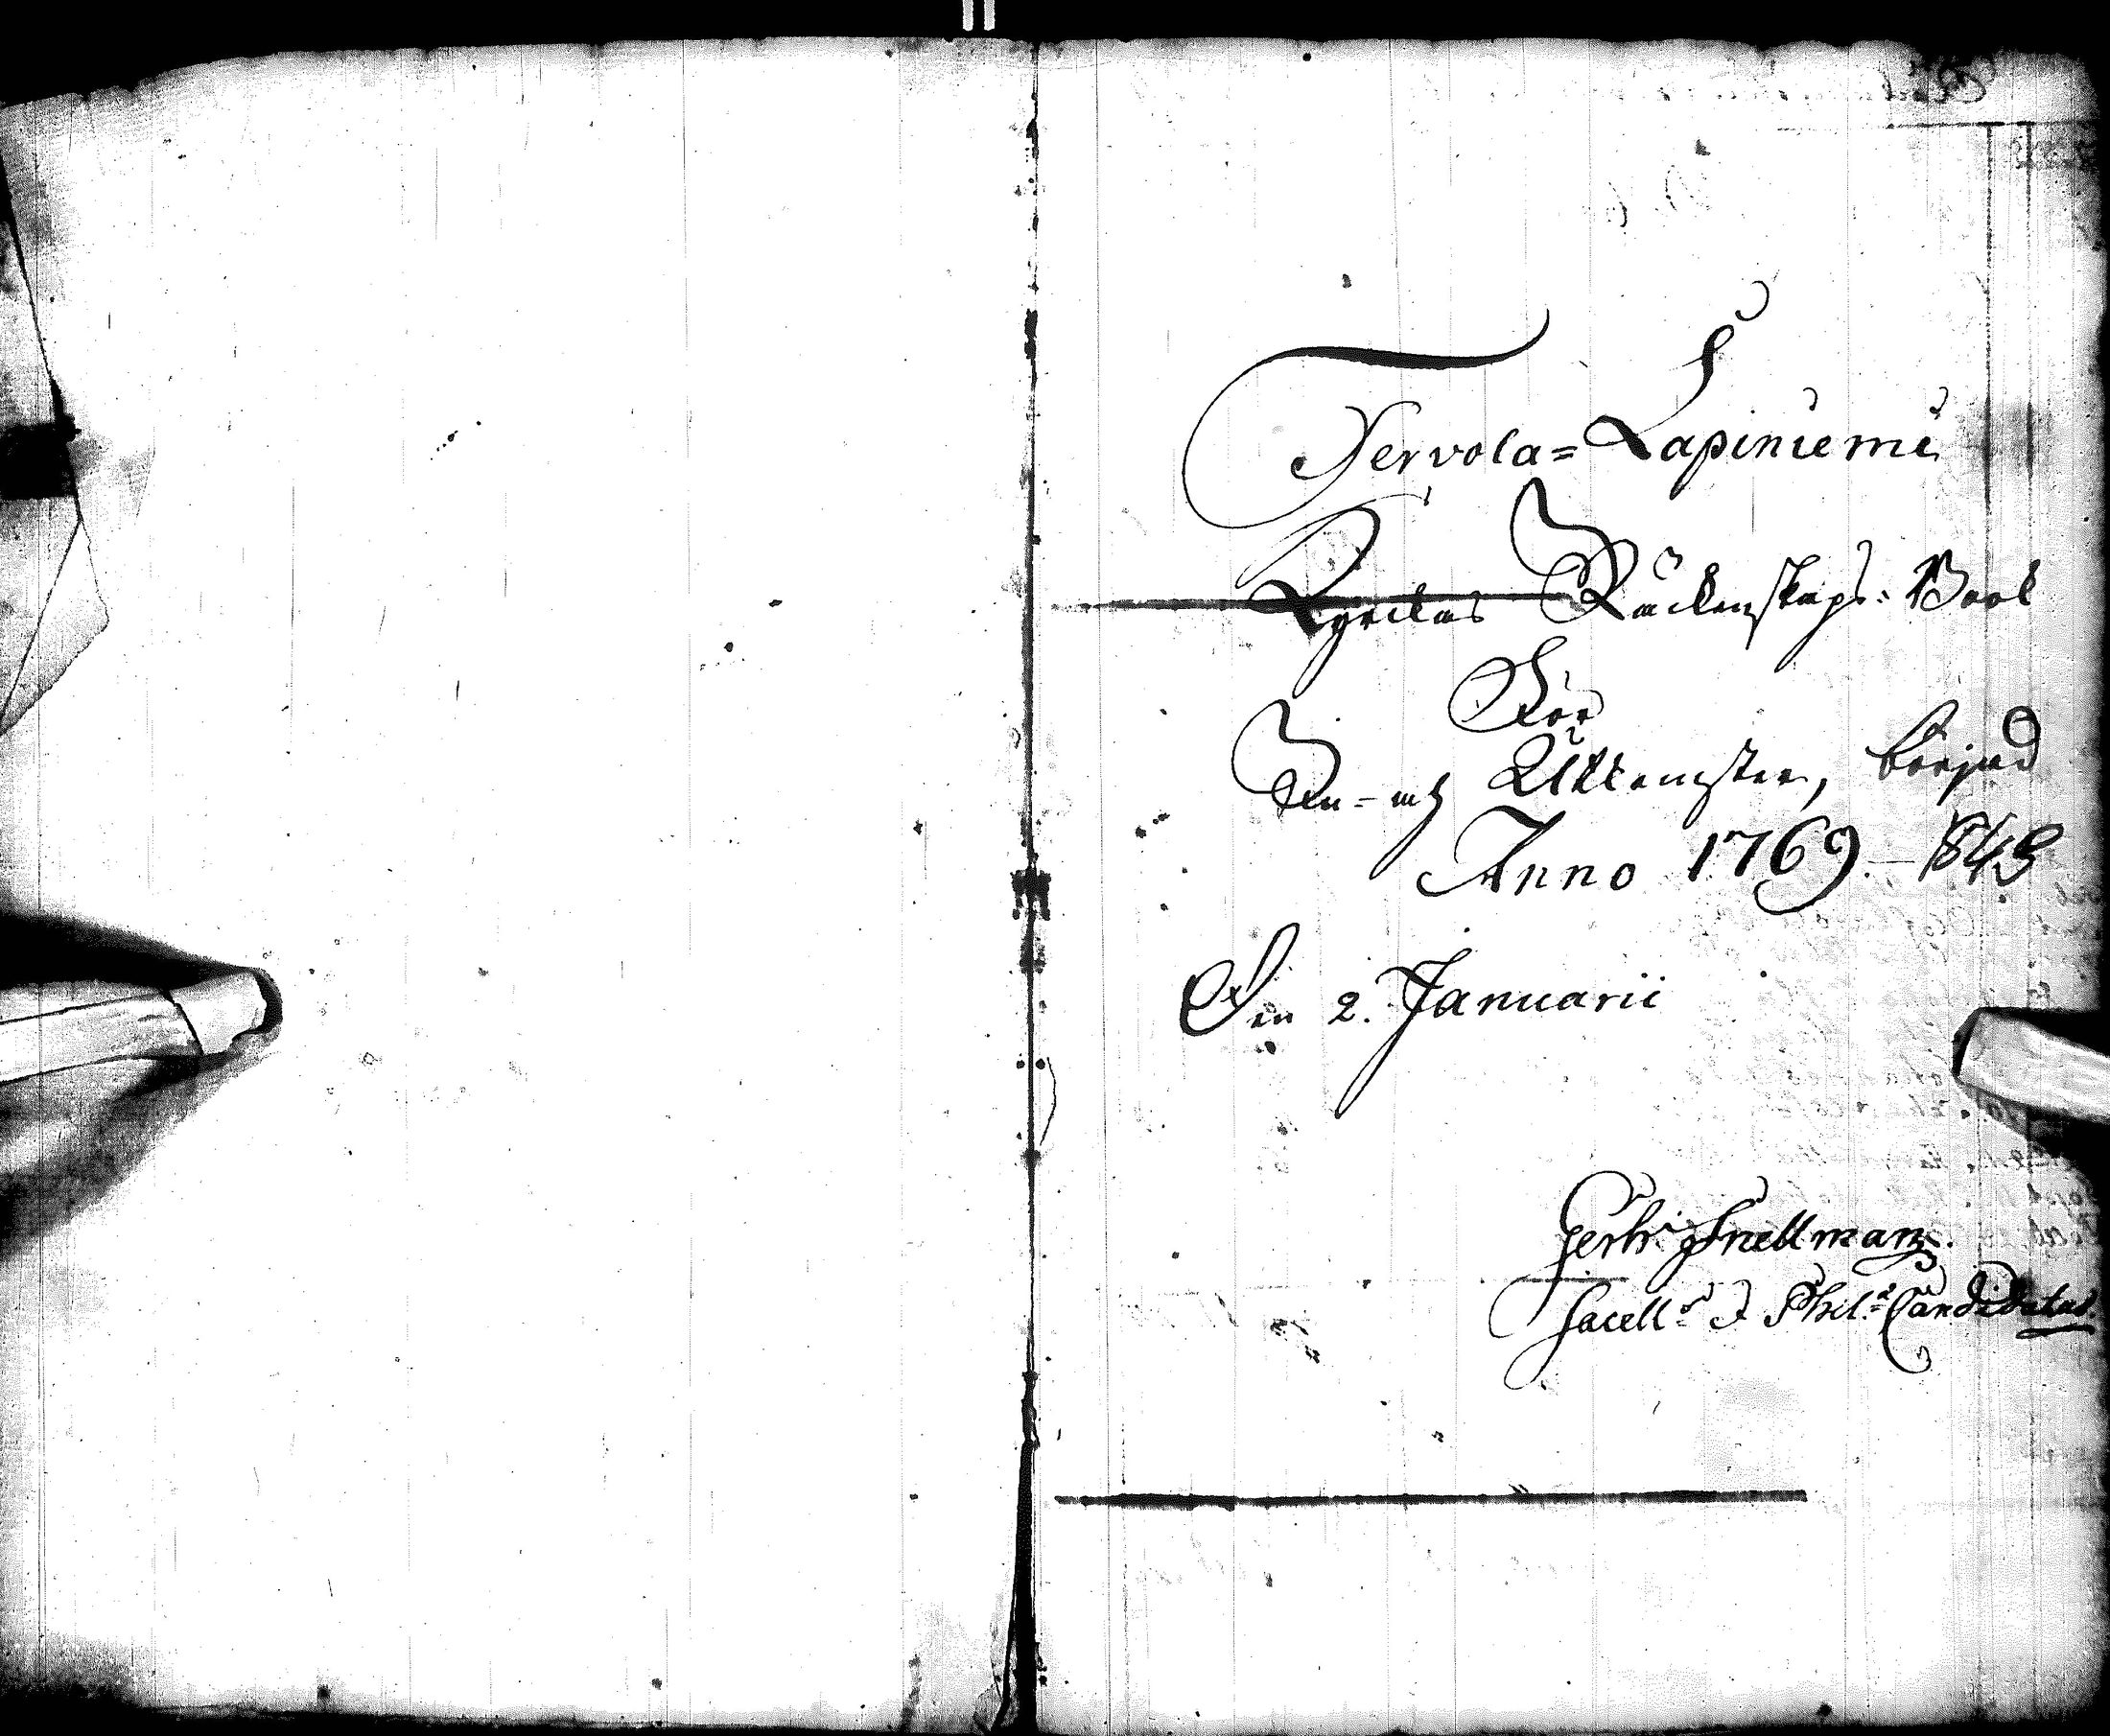 Tervola= Lapiniemi
Kyrckas Räckenskaps: Book
För
In- och Uttgifter, börjad
Anno 1769. – 1843
Den 2. Januarii
Gerhr Snellman.
Sacell: & Phil: Candidatus